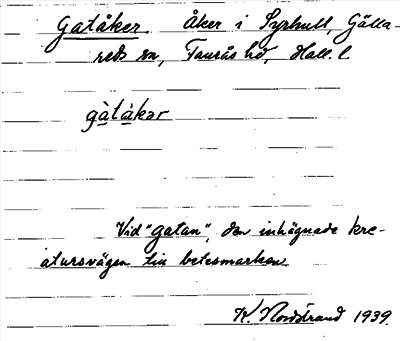 Gatåker. Åker i Syrhult, Gälla-
reds sn, Faurås hd, Hall. l
gàtàkər
Vid "gatan", den inhägnade kre-
atursvägen till betesmarken
K. Nordstrand 1939.